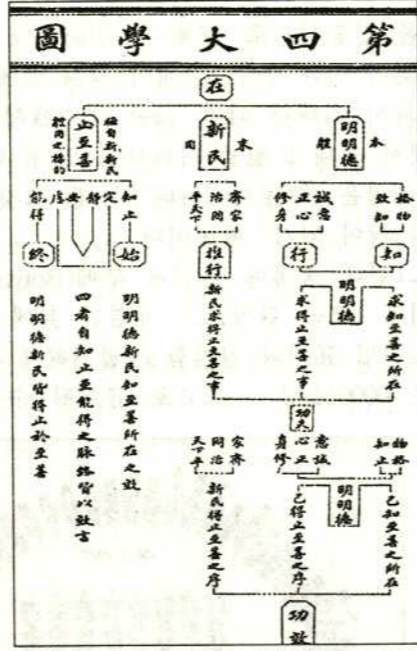 第四大學圖
在
明明德
本
體
新民
末
用
止至善
極自新新民
體用之標的
格物
致知
誠意
正心
修身
齊家
治國
平天下
知止
定
靜
安
慮
能得
知
行
推行
始
終
明明德
求知至善之所在
求得止至善之事
新民求得止至善之事
明明德新民知至善所在之效
四者自知止至能得之脉絡皆以效言
明明德新民皆得止於至善
功夫
物格
知止
意誠
心正
身修
家齊
國治
天下平
明明德
已知至善之所在
已得止至善之序
新民得止至善之序
功效